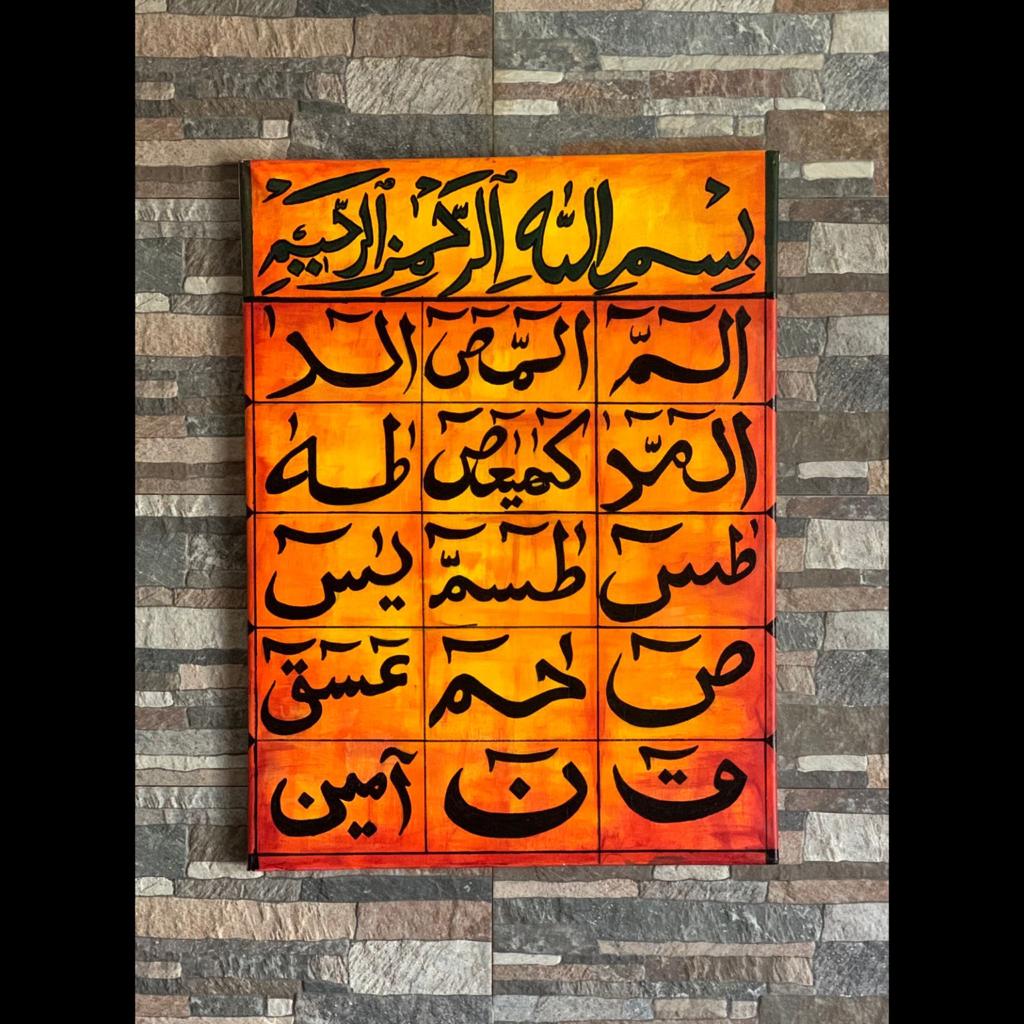 بِسْمِ اللّٰهِ الرَّحْمٰنِ الرَّحِيْمِ
الٓمّٓ الٓمّٓصٓ الٓرٰ
الٓمّٓرٰ كٓهٰيٰعٓصٓ طٰهٰ
طٰسٓ طٰسٓمّٓ يٰسٓ
صٓ حٰمٓ عٓسٓقٓ
قٓ نٓ آمين